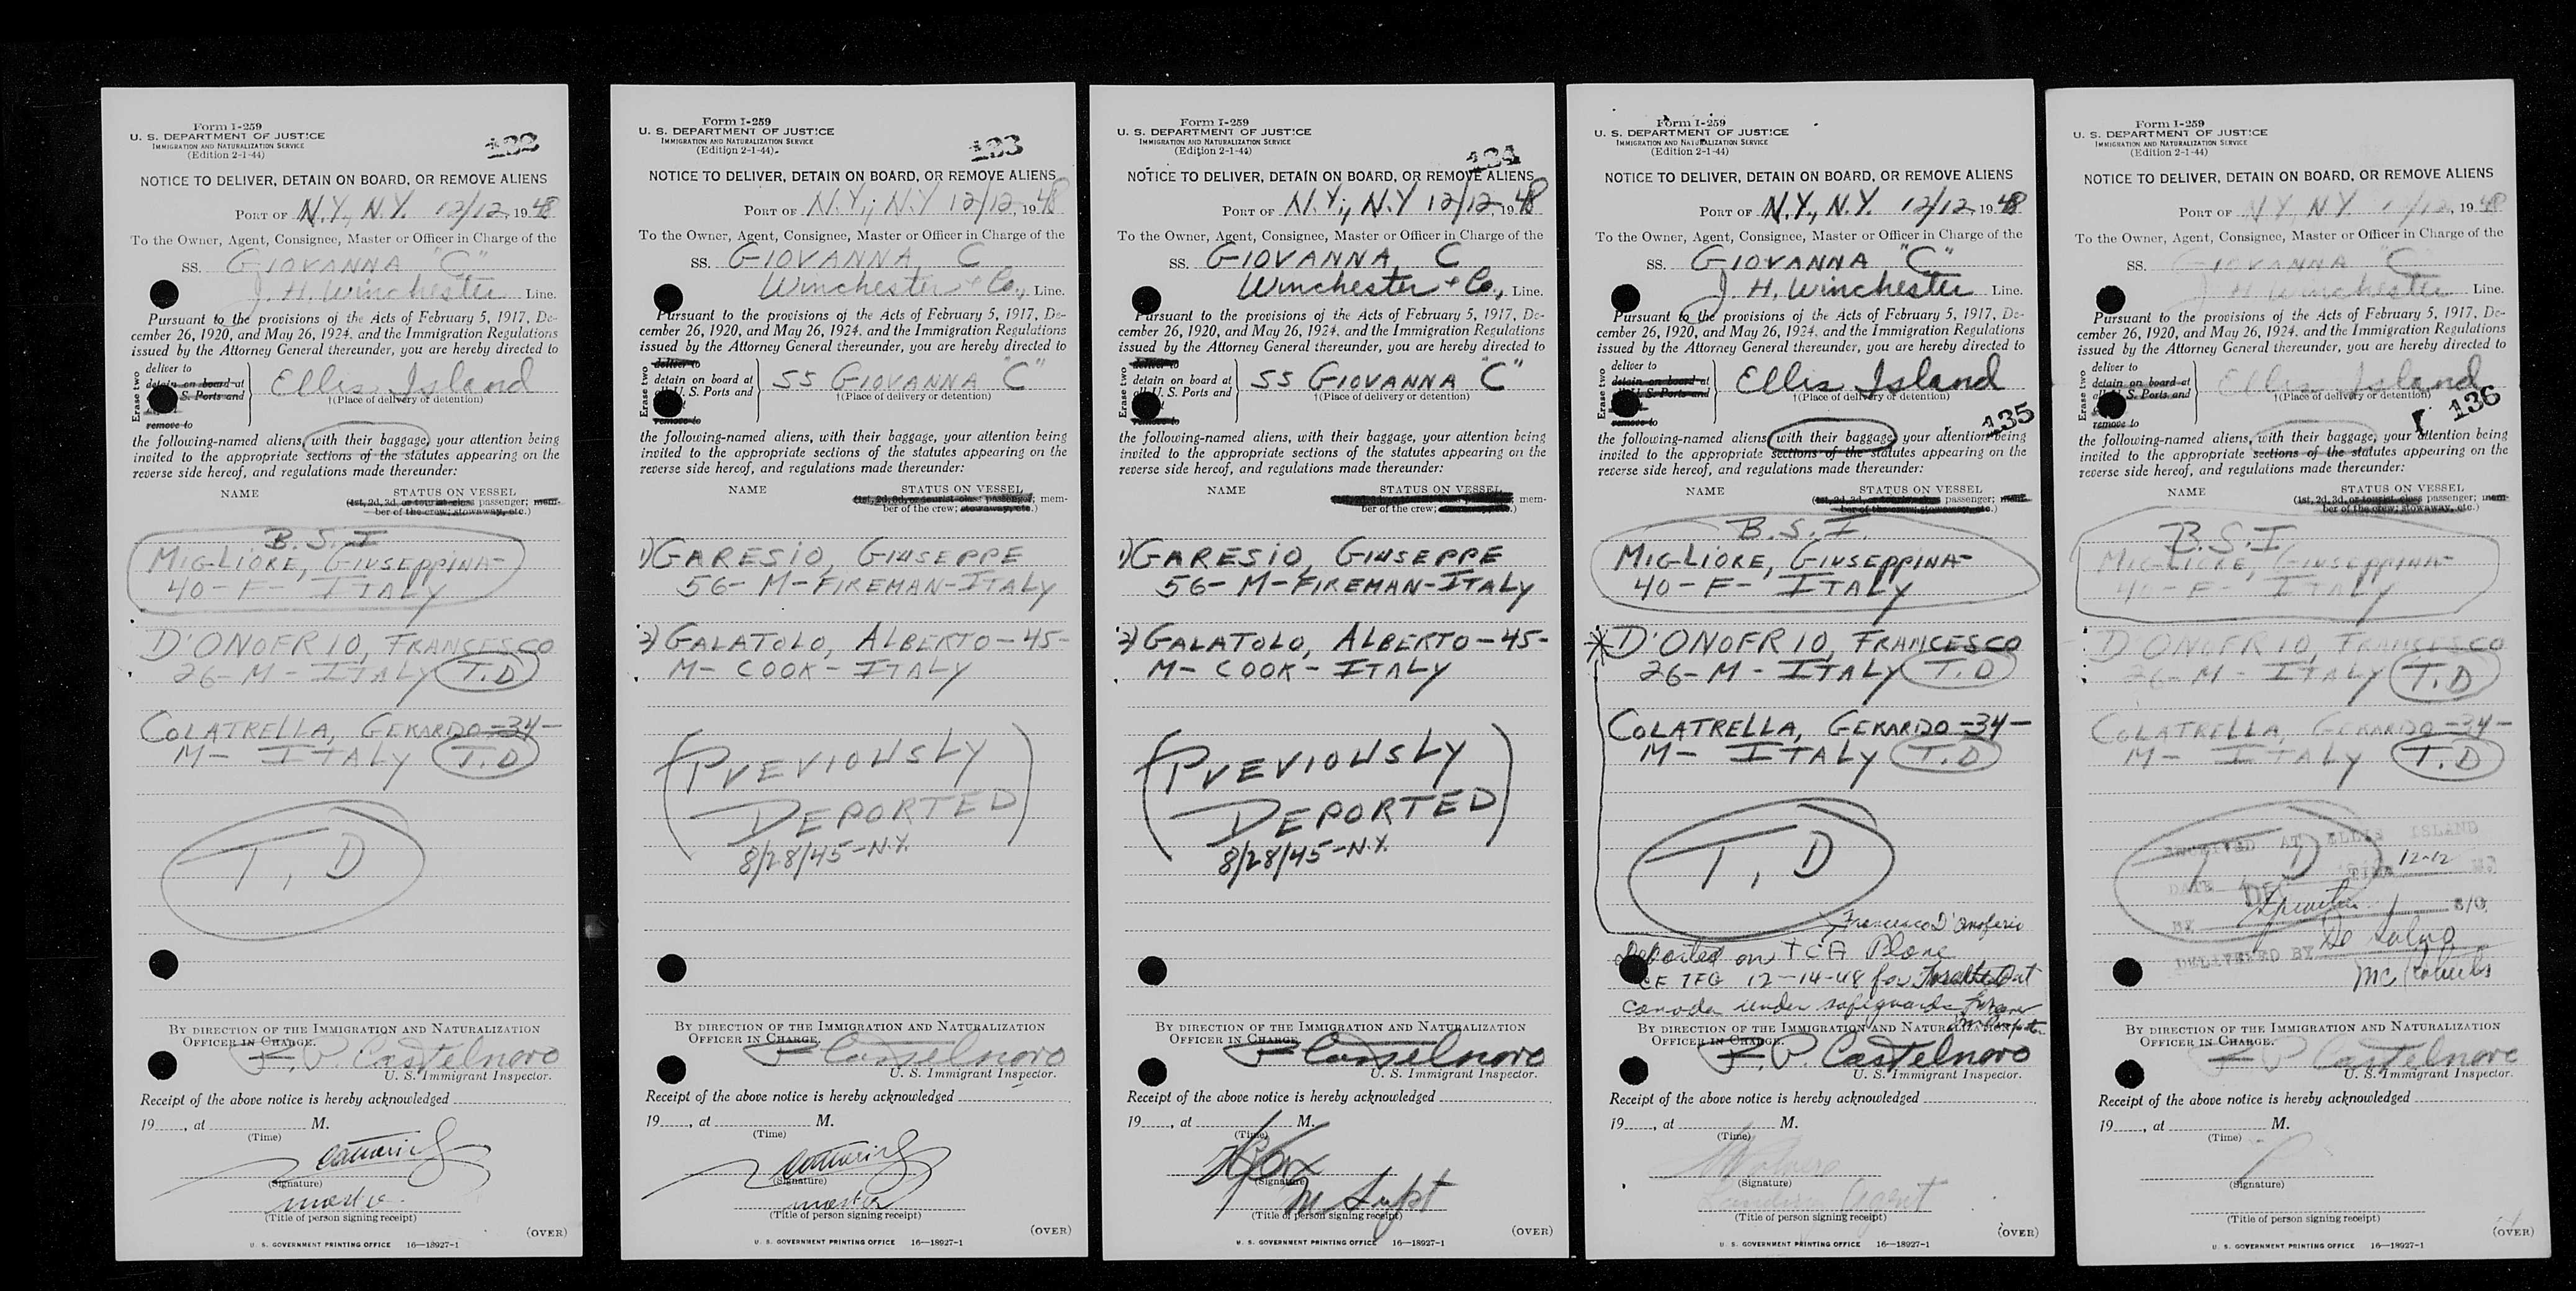 Form I-259
U. S. DEPARTMENT OF JUSTICE
IMMIGRATION AND NATURALIZATION SERVICE
(Edition 2-1-44)
132
NOTICE TO DELIVER, DETAIN ON BOARD, OR REMOVE ALIENS
PORT OF N.Y., N.Y. 12/12, 1948
To the Owner, Agent, Consignee, Master or Officer in Charge of the
SS. GIOVANNA "C"
J. H. Winchester Line.
Pursuant to the provisions of the Acts of February 5, 1917, De-
cember 26, 1920, and May 26, 1924, and the Immigration Regulations
issued by the Attorney General thereunder, you are hereby directed to
Erase two
deliver to
detain on board at
S. Ports and
remove to
Ellis Island
†(Place of delivery or detention)
the following-named aliens, with their baggage, your attention being
invited to the appropriate sections of the statutes appearing on the
reverse side hereof, and regulations made thereunder:
NAME STATUS ON VESSEL
(1st, 2d, 3d, or tourist class passenger; mem-
ber of the crew; stowaway, etc.)
B. S. I
MIGLIORE, GIUSEPPINA-
40-F- ITALY
D'ONOFRIO, FRANCESCO
26-M- ITALY T.D
COLATRELLA, GERARDO-34-
M- ITALY T.D
T, D
BY DIRECTION OF THE IMMIGRATION AND NATURALIZATION
OFFICER IN CHARGE.
F. P. Castelnovo
U. S. Immigrant Inspector.
Receipt of the above notice is hereby acknowledged
19___, at ___ M.
(Time)
(Signature)
master
(Title of person signing receipt)
(OVER)
U. S. GOVERNMENT PRINTING OFFICE 16—18927-1
Form I-259
U. S. DEPARTMENT OF JUSTICE
IMMIGRATION AND NATURALIZATION SERVICE
(Edition 2-1-44)
133
NOTICE TO DELIVER, DETAIN ON BOARD, OR REMOVE ALIENS
PORT OF N.Y., N.Y 12/12, 1948
To the Owner, Agent, Consignee, Master or Officer in Charge of the
SS. GIOVANNA C
Winchester + Co., Line.
Pursuant to the provisions of the Acts of February 5, 1917, De-
cember 26, 1920, and May 26, 1924, and the Immigration Regulations
issued by the Attorney General thereunder, you are hereby directed to
Erase two
deliver to
detain on board at
all U. S. Ports and
remove to
SS GIOVANNA "C"
†(Place of delivery or detention)
the following-named aliens, with their baggage, your attention being
invited to the appropriate sections of the statutes appearing on the
reverse side hereof, and regulations made thereunder:
NAME STATUS ON VESSEL
(1st, 2d, 3d, or tourist class passenger; mem-
ber of the crew; stowaway, etc.)
1) GARESIO, GIUSEPPE
56-M-FIREMAN-ITALY
2) GALATOLO, ALBERTO-45-
M- COOK- ITALY
(PREVIOUSLY
DEPORTED)
8/28/45-N.Y.
BY DIRECTION OF THE IMMIGRATION AND NATURALIZATION
OFFICER IN CHARGE.
F Castelnovo
U. S. Immigrant Inspector.
Receipt of the above notice is hereby acknowledged
19___, at ___ M.
(Time)
(Signature)
master
(Title of person signing receipt)
(OVER)
U. S. GOVERNMENT PRINTING OFFICE 16—18927-1
Form I-259
U. S. DEPARTMENT OF JUSTICE
IMMIGRATION AND NATURALIZATION SERVICE
(Edition 2-1-44)
134
NOTICE TO DELIVER, DETAIN ON BOARD, OR REMOVE ALIENS
PORT OF N.Y., N.Y 12/12, 1948
To the Owner, Agent, Consignee, Master or Officer in Charge of the
SS. GIOVANNA C
Winchester + Co., Line.
Pursuant to the provisions of the Acts of February 5, 1917, De-
cember 26, 1920, and May 26, 1924, and the Immigration Regulations
issued by the Attorney General thereunder, you are hereby directed to
Erase two
deliver to
detain on board at
all U. S. Ports and
remove to
SS GIOVANNA "C"
†(Place of delivery or detention)
the following-named aliens, with their baggage, your attention being
invited to the appropriate sections of the statutes appearing on the
reverse side hereof, and regulations made thereunder:
NAME STATUS ON VESSEL
mem-
ber of the crew;
1) GARESIO, GIUSEPPE
56-M-FIREMAN-ITALY
2) GALATOLO, ALBERTO-45-
M- COOK- ITALY
(PREVIOUSLY
DEPORTED)
8/28/45-N.Y.
BY DIRECTION OF THE IMMIGRATION AND NATURALIZATION
OFFICER IN CHARGE.
F Castelnovo
U. S. Immigrant Inspector.
Receipt of the above notice is hereby acknowledged
19___, at ___ M.
(Time)
(Signature)
M Supt
(Title of person signing receipt)
(OVER)
U. S. GOVERNMENT PRINTING OFFICE 16—18927-1
Form I-259
U. S. DEPARTMENT OF JUSTICE
IMMIGRATION AND NATURALIZATION SERVICE
(Edition 2-1-44)
NOTICE TO DELIVER, DETAIN ON BOARD, OR REMOVE ALIENS
PORT OF N.Y., N.Y. 12/12 1948
To the Owner, Agent, Consignee, Master or Officer in Charge of the
SS. GIOVANNA "C"
J. H. Winchester Line.
Pursuant to the provisions of the Acts of February 5, 1917, De-
cember 26, 1920, and May 26, 1924, and the Immigration Regulations
issued by the Attorney General thereunder, you are hereby directed to
Erase two
deliver to
detain on board at
U. S. Ports and
remove to
Ellis Island
†(Place of delivery or detention)
135
the following-named aliens, with their baggage, your attention being
invited to the appropriate sections of the statutes appearing on the
reverse side hereof, and regulations made thereunder:
NAME STATUS ON VESSEL
(1st, 2d, 3d, or tourist class passenger; mem-
ber of the crew; stowaway, etc.)
B. S. I.
MIGLIORE, GIUSEPPINA-
40-F- ITALY
*D'ONOFRIO, FRANCESCO
26-M- ITALY T.D
COLATRELLA, GERARDO-34-
M- ITALY T.D
T, D
Francesco D'Onofrio
Deported on TCA Plane
CF TFG 12-14-48 for Ont
Canada under safeguards
BY DIRECTION OF THE IMMIGRATION AND NATURALIZATION
OFFICER IN CHARGE.
F. P. Castelnovo
U. S. Immigrant Inspector.
Receipt of the above notice is hereby acknowledged
19___, at ___ M.
(Time)
(Signature)
Agent
(Title of person signing receipt)
(OVER)
U. S. GOVERNMENT PRINTING OFFICE 16—18927-1
Form I-259
U. S. DEPARTMENT OF JUSTICE
IMMIGRATION AND NATURALIZATION SERVICE
(Edition 2-1-44)
NOTICE TO DELIVER, DETAIN ON BOARD, OR REMOVE ALIENS
PORT OF N.Y., N.Y. 1/12, 1948
To the Owner, Agent, Consignee, Master or Officer in Charge of the
SS. GIOVANNA "C"
J. H. Winchester Line.
Pursuant to the provisions of the Acts of February 5, 1917, De-
cember 26, 1920, and May 26, 1924, and the Immigration Regulations
issued by the Attorney General thereunder, you are hereby directed to
Erase two
deliver to
detain on board at
all U. S. Ports and
remove to
Ellis Island
†(Place of delivery or detention)
136
the following-named aliens, with their baggage, your attention being
invited to the appropriate sections of the statutes appearing on the
reverse side hereof, and regulations made thereunder:
NAME STATUS ON VESSEL
(1st, 2d, 3d, or tourist class passenger; mem-
ber of the crew; stowaway, etc.)
B. S. I
MIGLIORE, GIUSEPPINA-
40-F- ITALY
D'ONOFRIO, FRANCESCO
26-M- ITALY T.D
COLATRELLA, GERARDO-34-
M- ITALY T.D
T, D
RECEIVED AT ELLIS ISLAND
DATE DEC TIME 12-12
BY S/O.
DELIVERED BY De Salvo
McRoberts
BY DIRECTION OF THE IMMIGRATION AND NATURALIZATION
OFFICER IN CHARGE.
F P Castelnovo
U. S. Immigrant Inspector.
Receipt of the above notice is hereby acknowledged
19___, at ___ M.
(Time)
(Signature)
(Title of person signing receipt)
(OVER)
U. S. GOVERNMENT PRINTING OFFICE 16—18927-1